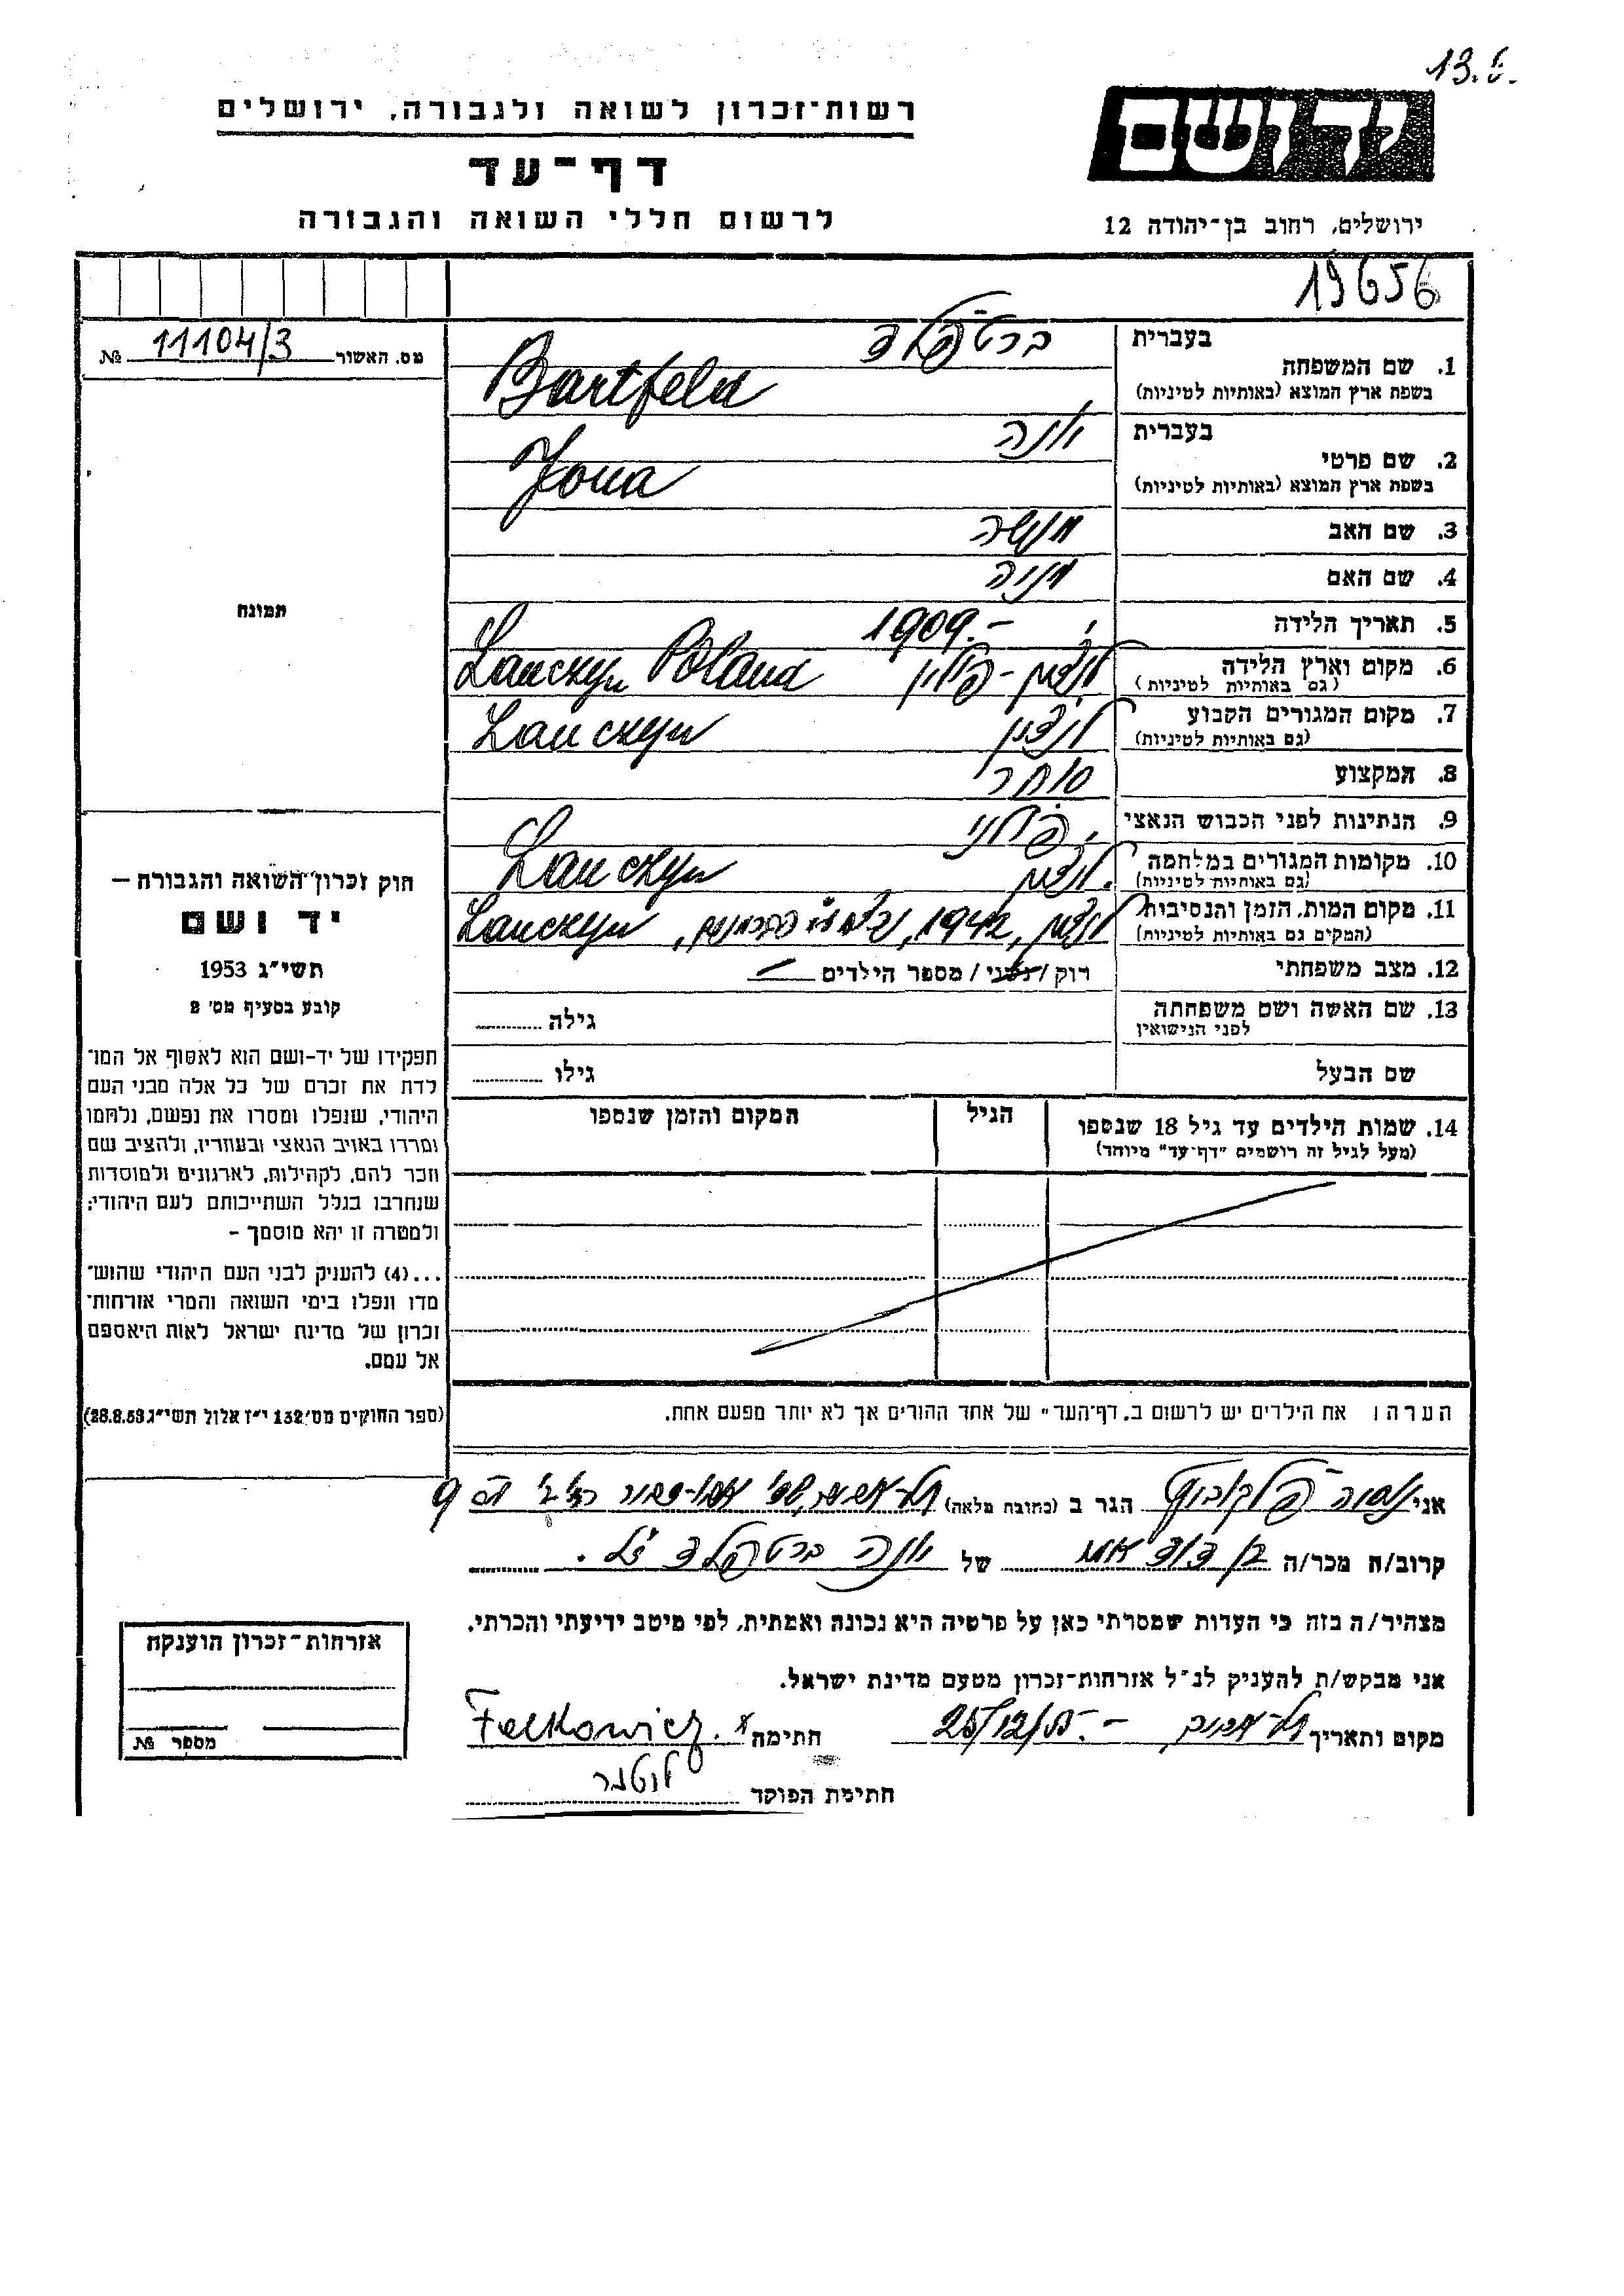 13.
יד ושם
רשות־זכרון לשואה ולגבורה, ירושלים
דף־עד
לרשום חללי השואה והגבורה
ירושלים, רחוב בן־יהודה 12
19656
מס. האשור 11104/3 №
תמונה
1. שם המשפחה
בעברית ברטפלד
בשפת ארץ המוצא (באותיות לטיניות) Bartfeld
2. שם פרטי
בעברית יונה
בשפת ארץ המוצא (באותיות לטיניות) Jona
3. שם האב מנשה
4. שם האם מניה
5. תאריך הלידה 1909.-
6. מקום וארץ הלידה לנצין - פולין Lanczyn Poland
(גם באותיות לטיניות)
7. מקום המגורים הקבוע לנצין Lanczyn
(גם באותיות לטיניות)
8. המקצוע סוחר
9. הנתינות לפני הכבוש הנאצי פולני
10. מקומות המגורים במלחמה לנצין Lanczyn
(גם באותיות לטיניות)
11. מקום המות, הזמן והנסיבות לנצין, 1942, Lanczyn
(המקים גם באותיות לטיניות)
12. מצב משפחתי רוק / נשוי / מספר הילדים
13. שם האשה ושם משפחתה גילה
לפני הנישואין
שם הבעל גילו
14. שמות הילדים עד גיל 18 שנספו הגיל המקום והזמן שנספו
(מעל לגיל זה רושמים "דף־עד" מיוחד)
הערה: את הילדים יש לרשום ב"דף־העד" של אחד ההורים אך לא יותר מפעם אחת.
חוק זכרון השואה והגבורה —
יד ושם
תשי"ג 1953
קובע בסעיף מס' 2
תפקידו של יד-ושם הוא לאסוף אל המו־
לדת את זכרם של כל אלה מבני העם
היהודי, שנפלו ומסרו את נפשם, נלחמו
ומרדו באויב הנאצי ובעוזריו, ולהציב שם
וזכר להם, לקהילות, לארגונים ולמוסדות
שנחרבו בגלל השתייכותם לעם היהודי;
ולמטרה זו יהא מוסמך –
...(4) להעניק לבני העם היהודי שהוש־
מדו ונפלו בימי השואה והמרי אזרחות־
זכרון של מדינת ישראל לאות היאספם
אל עמם.
(ספר החוקים מס' 132 י"ז אלול תשי"ג 28.8.53)
אני פלקוביץ הגר ב (כתובת מלאה) 9
קרוב/ה מכר/ה בן דוד של יונה ברטפלד ז"ל.
מצהיר/ה בזה כי העדות שמסרתי כאן על פרטיה היא נכונה ואמתית, לפי מיטב ידיעתי והכרתי.
אני מבקש/ת להעניק לנ"ל אזרחות-זכרון מטעם מדינת ישראל.
מקום ותאריך תל-אביב 25/12/55.- חתימה Felkowicz.
חתימת הפוקד
אזרחות־זכרון הוענקה
מספר №